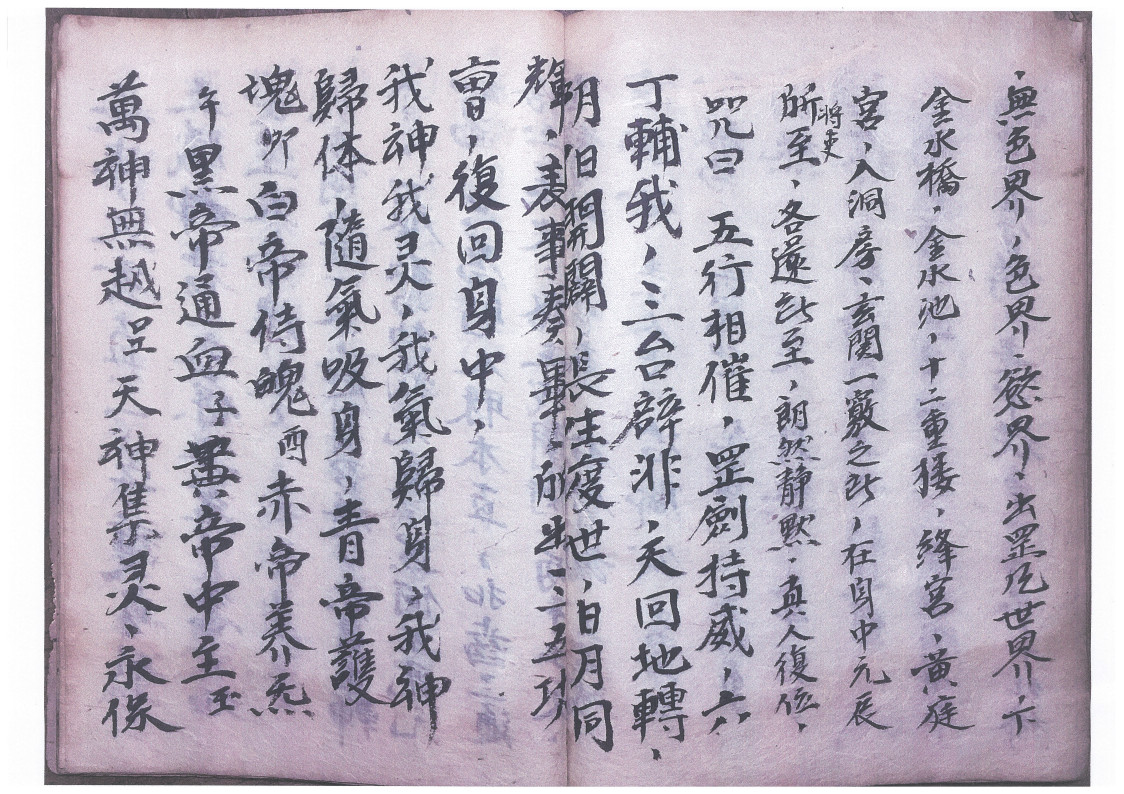 無色界,色界,慾界,出罡炁世界,下
金水橋,金水池,十二重楼,絳宮,黃庭
宮,入洞房,玄関一竅之所,在身中元辰
所將吏至,各還此至,朗然静黙,真人復位,
咒曰 五行相催,罡劍持威,六
丁輔我,三台辟非,天回地轉,
明旧開闢,長生度世,日月同
輝,表事奏畢,所出三五功
曹,復回身中,
我神我灵,我氣歸身,我神
歸体,隨氣吸身,青帝護
魂卯白帝侍魄酉赤帝养炁
午黑帝通血子黃帝中主玉
萬神無越呈天神集灵,永保